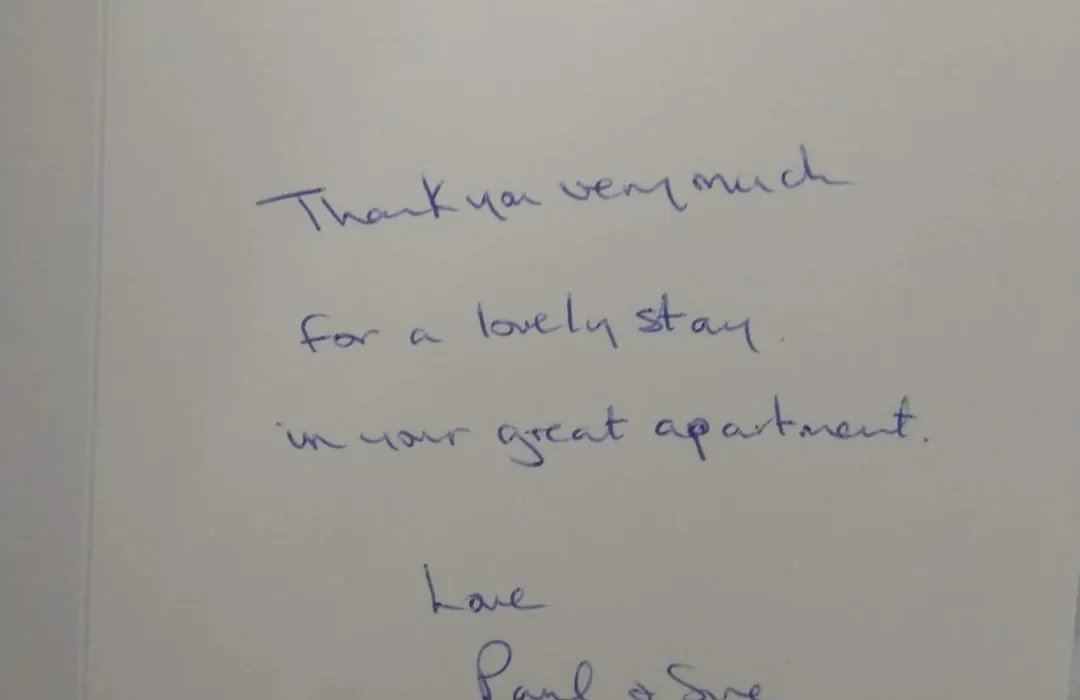 Thank you very much
for a lovely stay.
in your great apartment.
Love
Paul & Sue